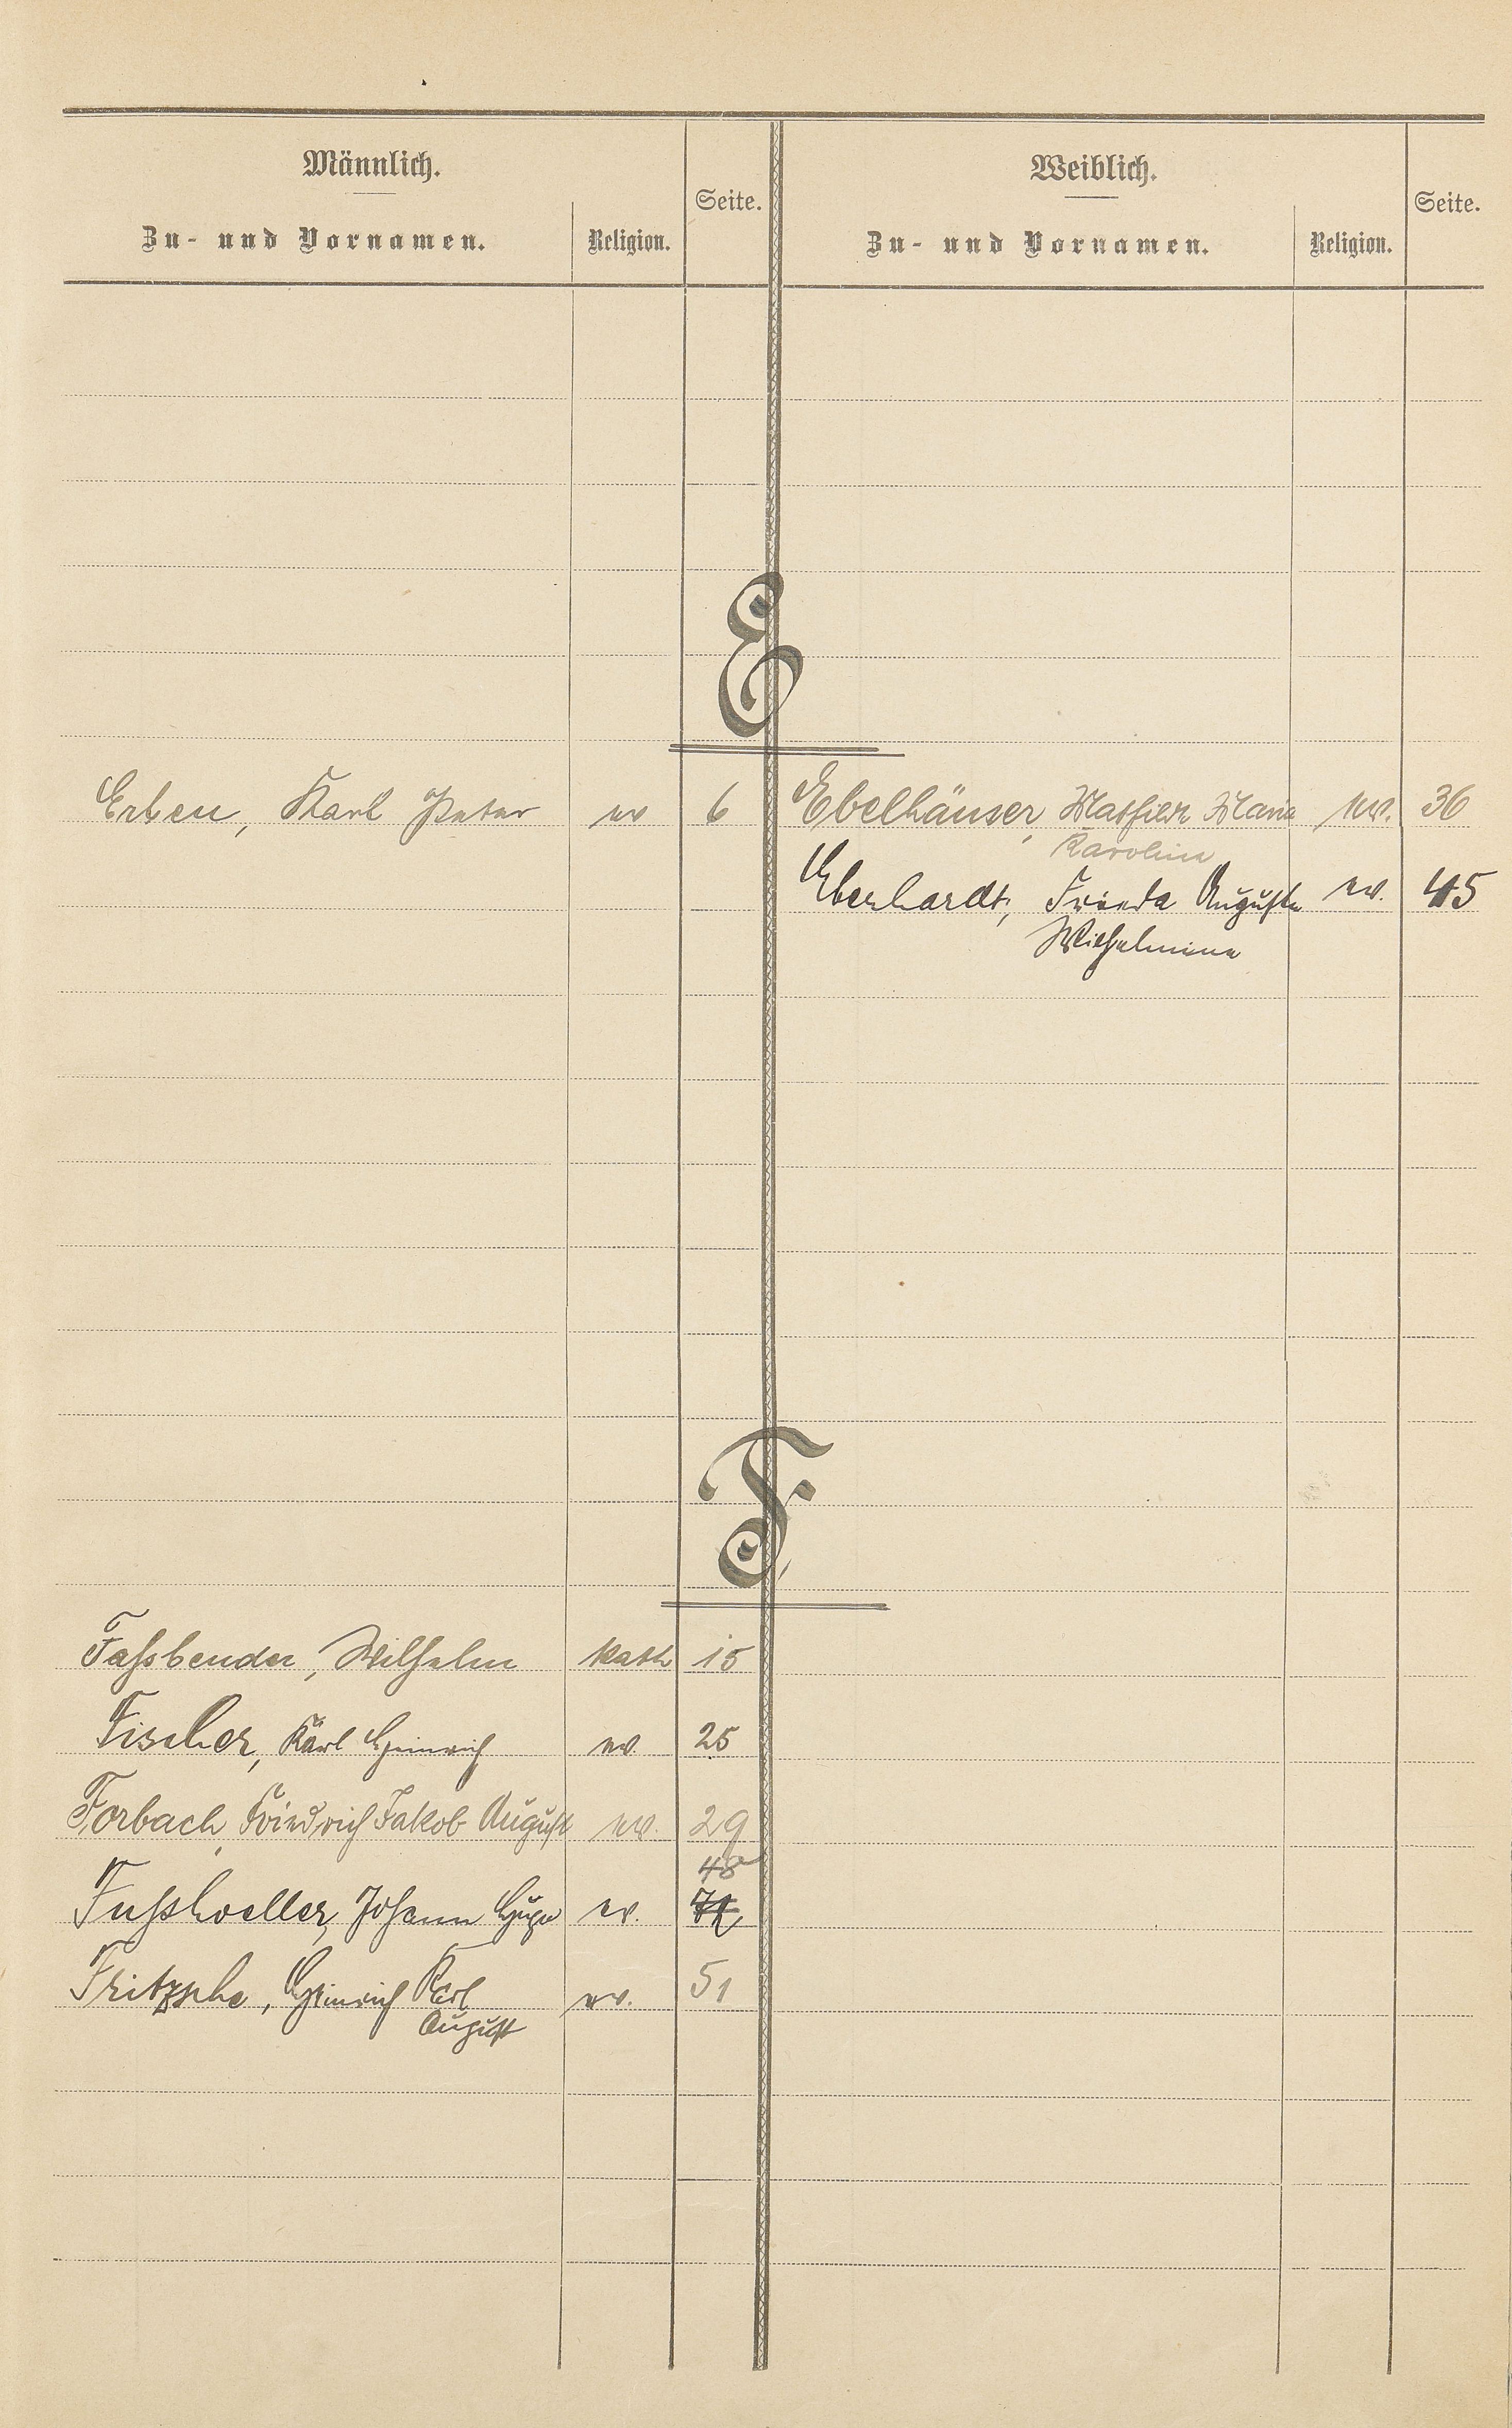 Männlich.
Zu- und Vornamen.
Religion.
Seite.
Weiblich.
Zu- und Vornamen.
Religion.
Seite.
E
Erben, Karl Peter ev 6
Ebelhäuser, Mathilde Maria ev. 36
Karolina
Eberhardt, Frieda Auguste ev. 45
Wilhelmine
F
Fassbender, Wilhelm kath 15
Fischer, Karl Heinrich ev. 25
Forbach, Friedrich Jakob August ev. 29
48
Fusshoeller, Johann Hugo ev.
Fritzsche, Heinrich Karl ev. 51
August